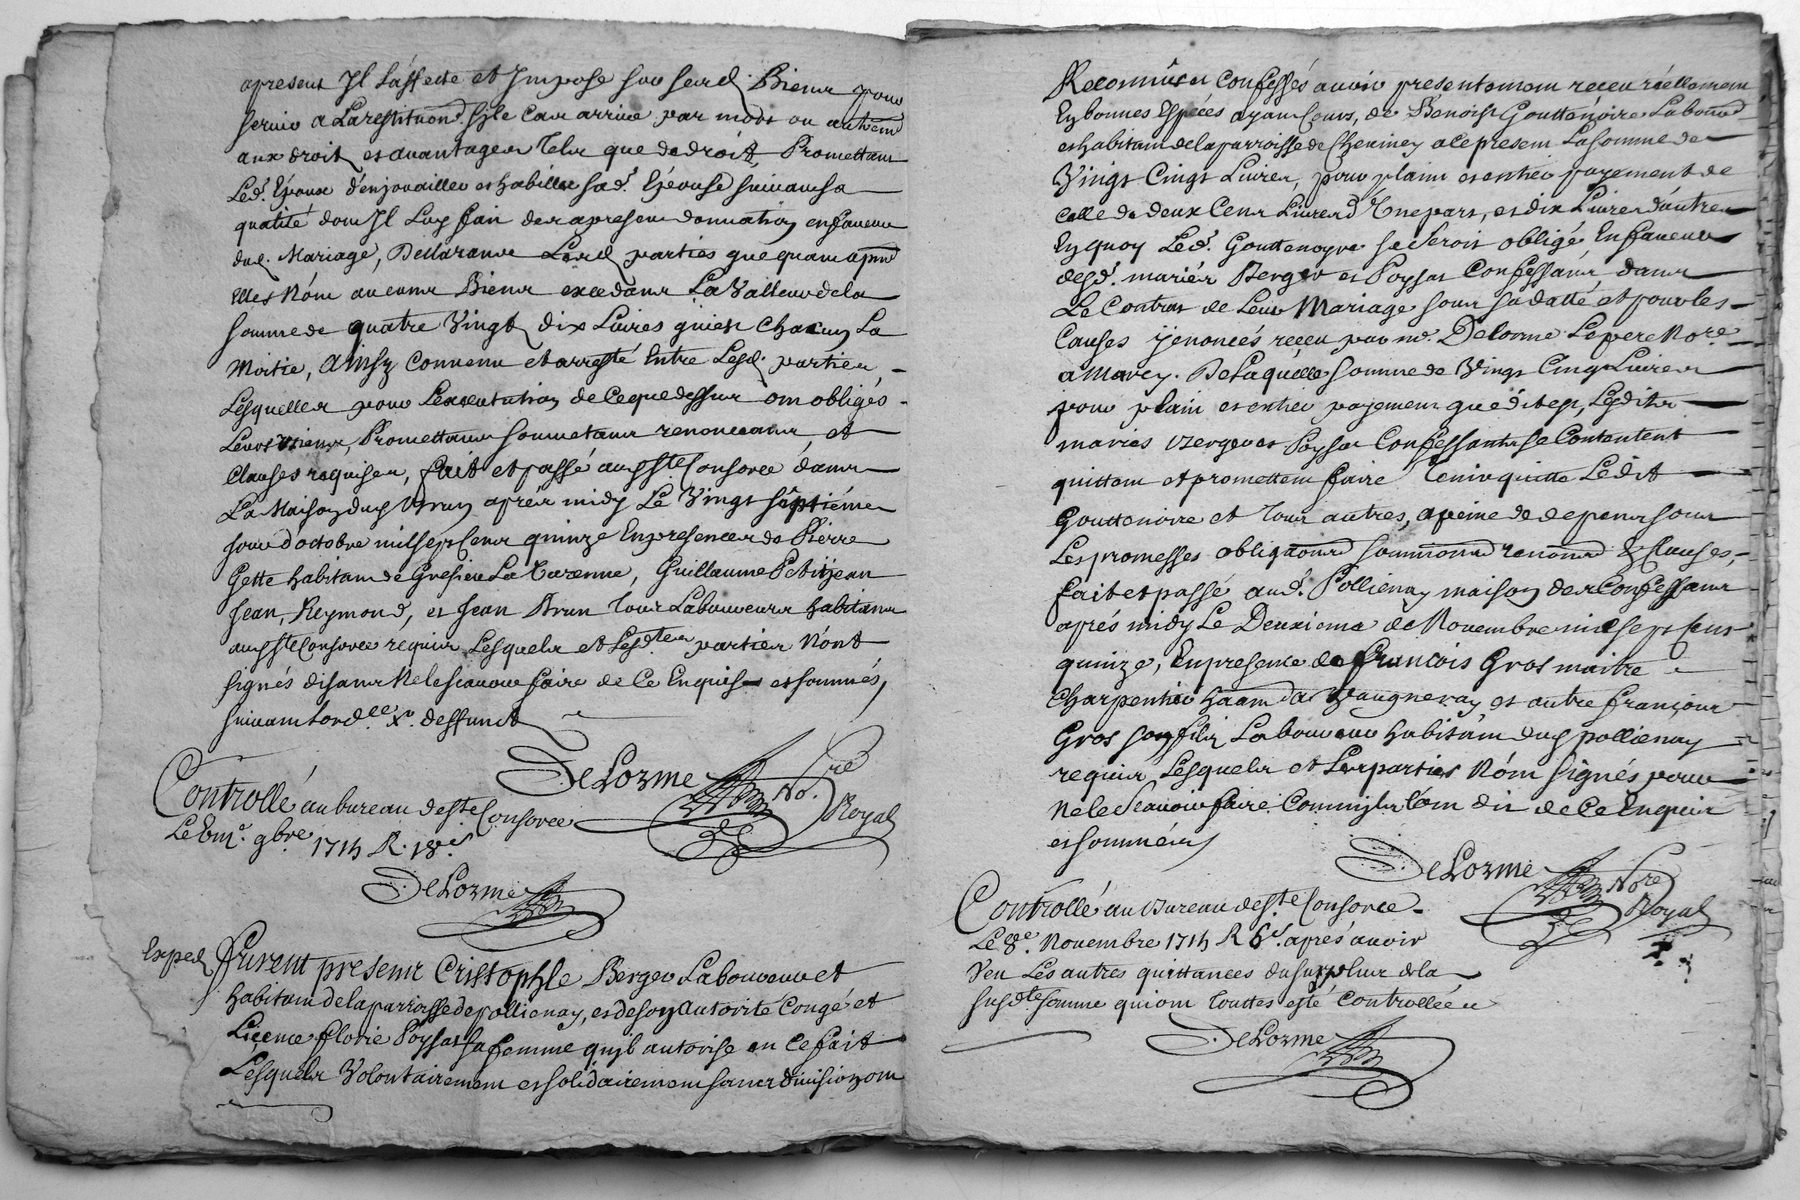 apresent Il L'affecte et Impose sur sesd. Biens pour
servir a La restituon. sy le cas arrive par mort ou autrem
aux droits et avantages Tels que de droit, Promettant
Led. Epoux d'enjouailler et habiller sad. Epouse suivant sa
qualité dont Il Luy fait des apresent donnation en faveur
dud. Mariage, Declarants Lesd. parties que quant apnt
elles N'ont aucuns Biens excedants La Valleur de la
somme de quatre Vingt dix Livres qui est chacun La
Moitie, Ainsy Convenu et arresté Entre Lesd. parties,
Lesquelles pour L'execution de ce que dessus ont obligés
Leurs biens, Promettants soumetants renonceants, et
Clauses requises, fait et passé aud. Ste Consorce dans
La Maison dud. Brun apres midy Le Vingt Septiéme
jour d'octobre mil sept Cent quinze En presence de Pierre
Gette habitant de Gresieu La Varenne, Guillaume Petitjean
Jean, Reymond, et Jean Brun Tous Laboureurs habitans
aud. Ste Consorce requis Lesquels et Lesd. parties N'ont
signés disants Ne le scavoir faire de Ce Enquis et sommés,
suivant L'ord.ce Xx. deffunct
DeLorme No.re Royal
Controllé au bureau de Ste Consorce
Le 8me. 9bre 1715 R. 18s
DeLorme
Exped. Furent presents Cristophle Berger Laboureur et
habitant de la parroisse de pollienay, et de son autorité Congé et
Licence florie Poysat sa femme qu'il autorise en ce fait
Lesquels Volontairement et solidairement sans division ont
Reconnus et Confessés avoir presentement receu réellement
En bonnes Espéces ayant Cours, de Benoist Gouttenoire Labour
et habitant de la parroisse de Cheviney a ce present La somme de
Vingt Cinq Livres, pour plain et entier payement de
celle de deux Cens Livres d'Une part, et dix Livres d'autre
En quoy Led. Gouttenoyre se seroit obligé En faveur
desd. mariés Berger et Poysat Confessants, dans
Le Contrat de Leur Mariage sous sa datte et pour les
Causes y enoncés receu par me. Delorme Le pere No.re
a Marcy. De Laquelle somme de Vingt Cinq Livres
pour plain et entier payement que dit est, Lesdits
mariés Berger et Poysat Confessants se Contentent
quittent et promettent faire Tenir quitte Ledit
Gouttenoire et Tous autres, a peine de depens sous
Les promesses obligaons soumions renons & Clauses,
fait et passé aud. Pollienay maison des Confessants
aprés midy Le Deuxiéme de Novembre mil sept Cent
quinze, En presence de francois Gros maitre
Charpentier haant de Vaugneray, et autre françois
Gros son fils Laboureur habitant dud. pollienay
requis Lesquels et Les parties N'ont signés pour
Ne le Scavoir faire Comm'ils L'ont dit de Ce Enquis
et sommés
DeLorme No.re Royal
Controllé au Bureau de Ste Consorce
Le 8e. Novembre 1715 R 6s. aprés avoir
Veu Les autres quittances du surplus de la
susd.te somme qui ont Touttes esté Controllées
DeLorme